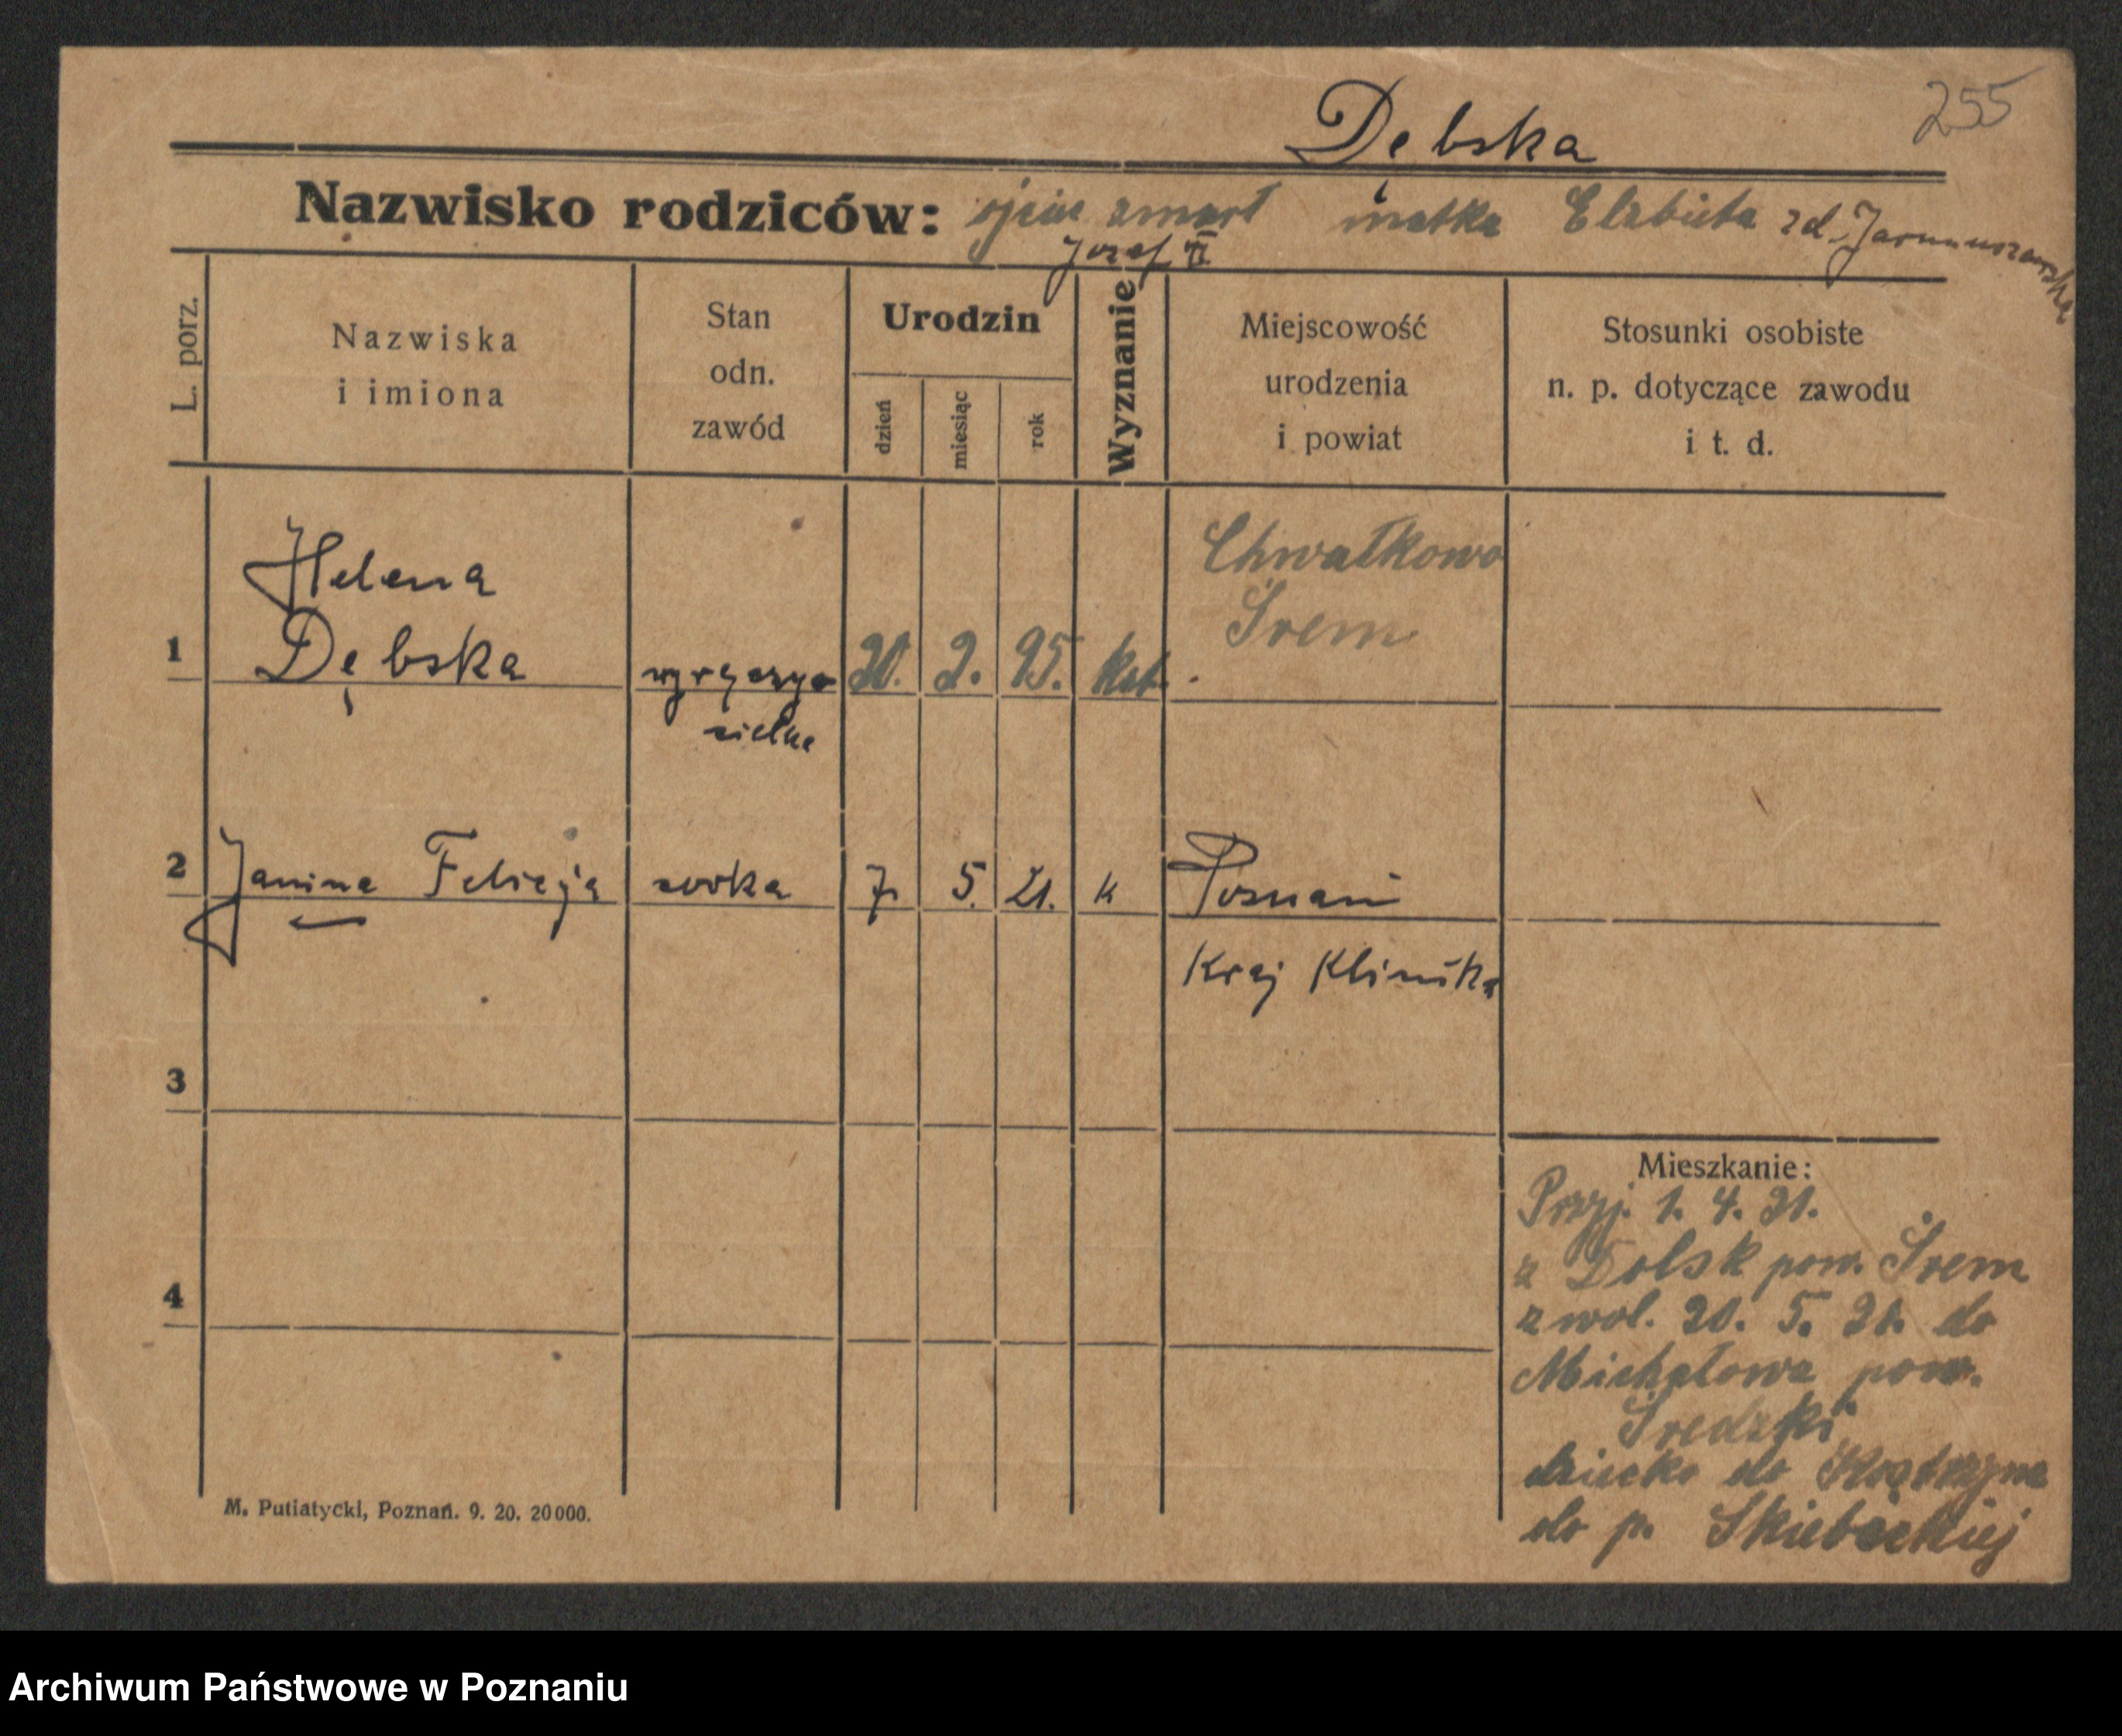 255
Dębska
Nazwisko rodziców: ojciec zmarł matka Elżbieta zd. Jarmuszewska
Józef
L. porz.
Nazwiska
i imiona
Stan
odn.
zawód
Urodzin
dzień
miesiąc
rok
Wyznanie
Miejscowość
urodzenia
i powiat
Stosunki osobiste
n. p. dotyczące zawodu
i t. d.
Helena
Chwałkowo
Śrem
1 Dębska 20. 2. 95. kat.
zielka
2 Janina Felicja córka 7 5. 21. k Poznań
Kraj Klinika
3
Mieszkanie:
Przyj. 1. 4. 21.
z Dolsk pow. Śrem
4
zwol. 20. 5. 21. do
Michałowa pow.
Średzki
dziecko do
do p.
M. Putiatycki, Poznań. 9. 20. 20000.
Archiwum Państwowe w Poznaniu